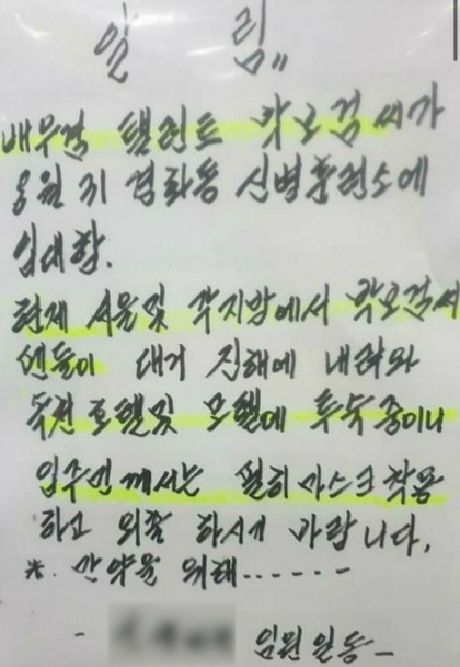 알 림"
배우겸 탤런트 박보검씨가
8월 31 경화동 신병훈련소에
입대함.
현재 서울및 각지방에서 박보검씨
팬들이 대거 진해에 내려와
속천 호텔및 모텔에 투숙중이니
입주민께서는 필히 마스크 착용
하고 외출 하시기 바랍니다.
※. 만약을 위해......-
- 임원일동-